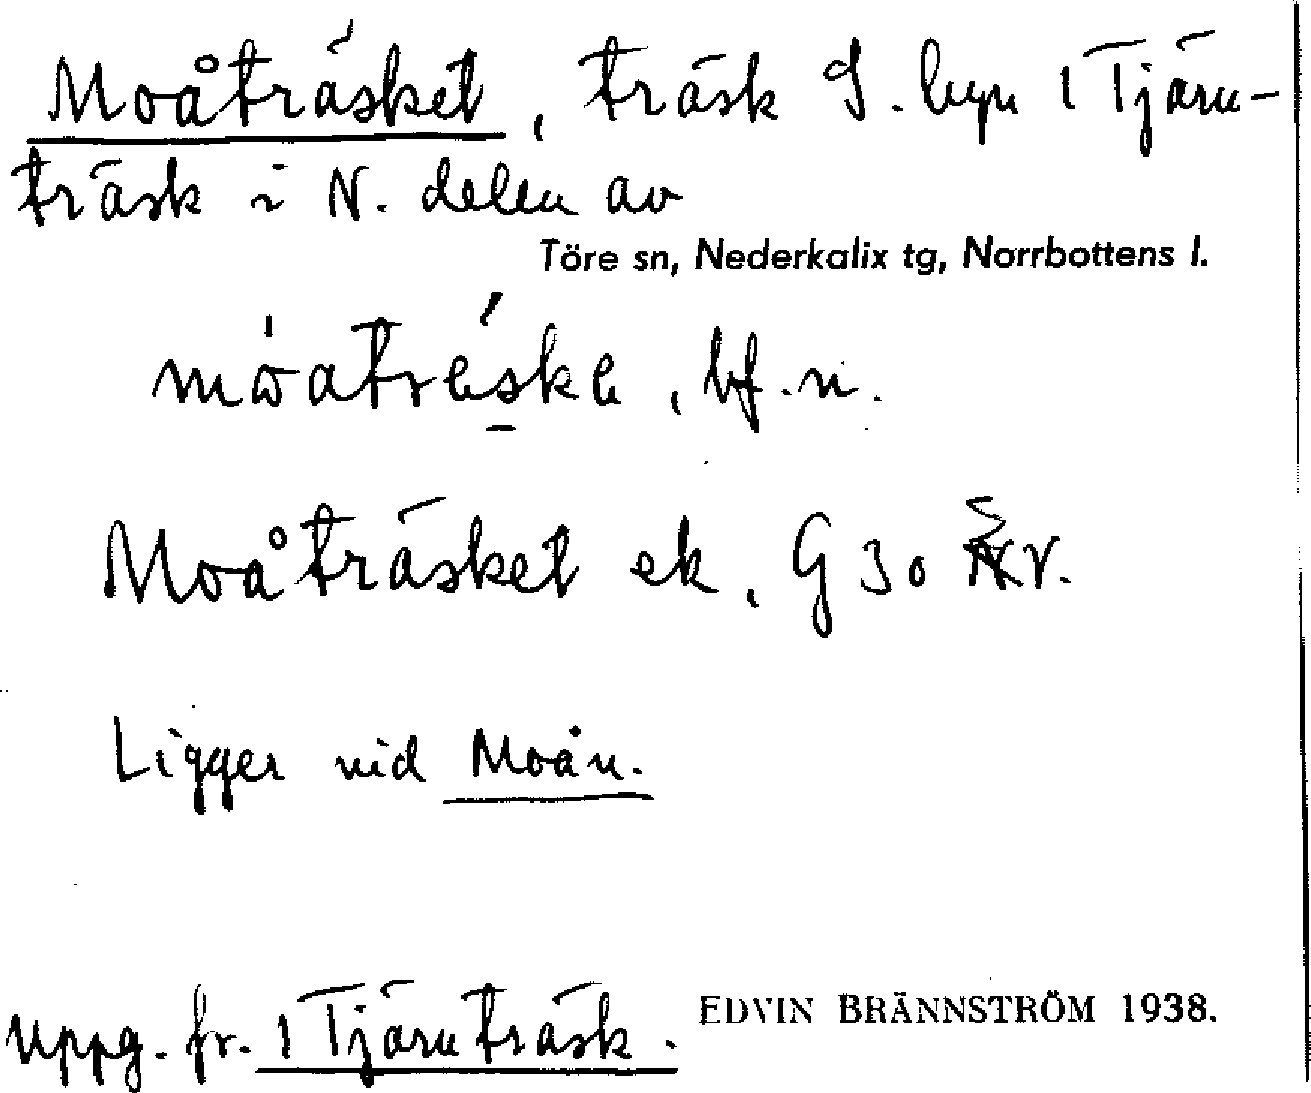 Moåträsket, träsk S. byn 1 Tjäru-
träsk i N. delen av
Töre sn, Nederkalix tg, Norrbottens l.
bf. n.
Moåträsket ek. G 30 r.
Ligger vid Moån.
Uppg. fr. 1 Tjäruträsk.
EDVIN BRÄNNSTRÖM 1938.